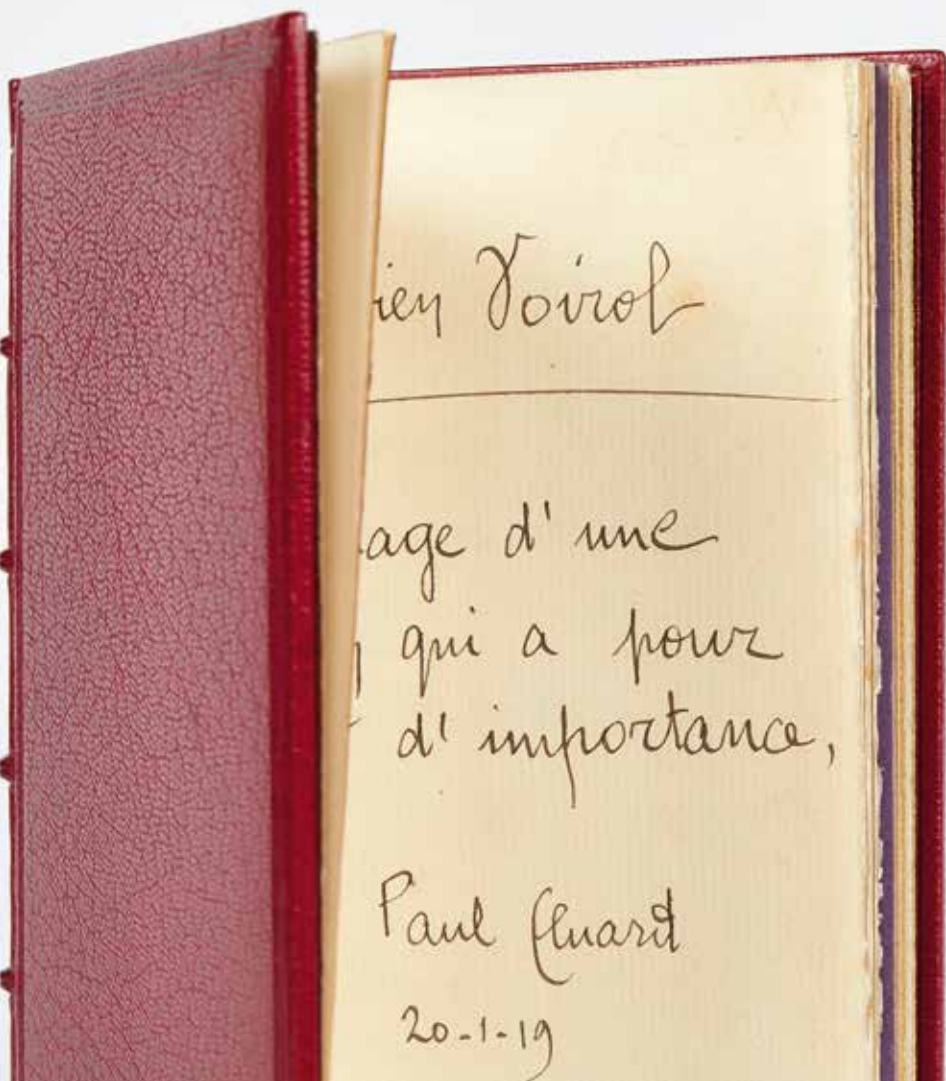 ien Voirol
age d'une
qui a pour
d'importance,
Paul Eluard
20-1-19